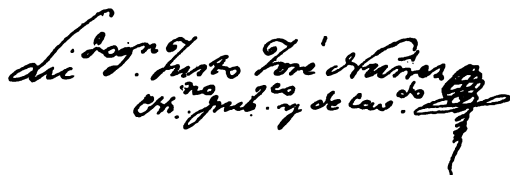 Lic.do Dgn. Justo José Nuñez
Ess.no pub.co y de Cav.do